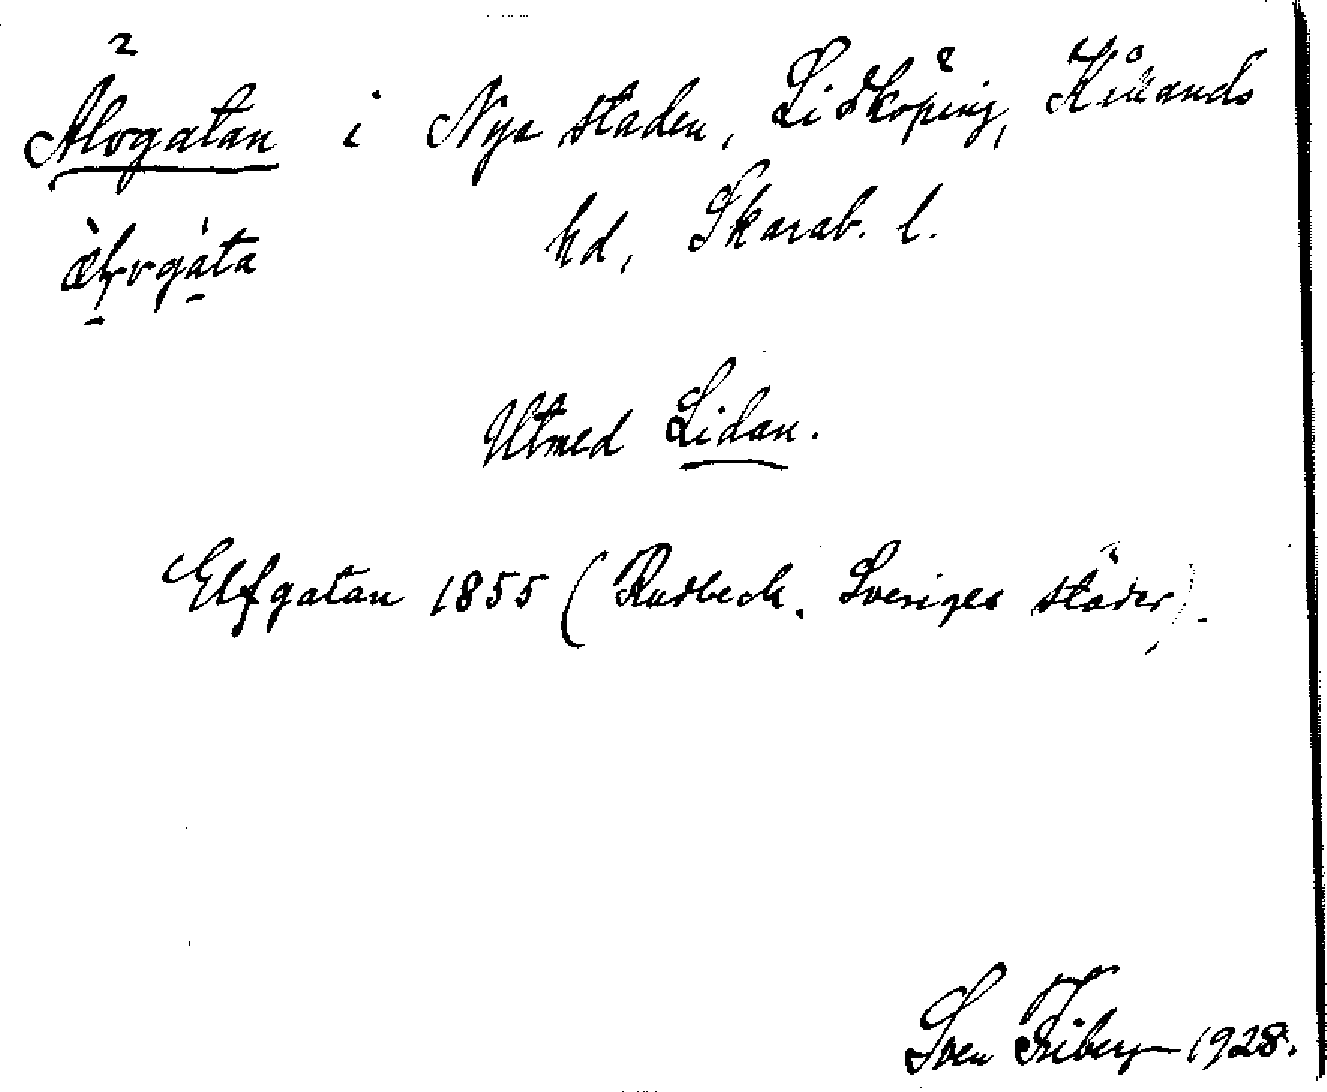 Älvgatan i Nya staden, Lidköping, Kållands
hd, Skarab. l.
Utmed Lidan.
Elfgatan 1855 (Rudbeck. Sveriges städer).
Sven Friberg 1928.